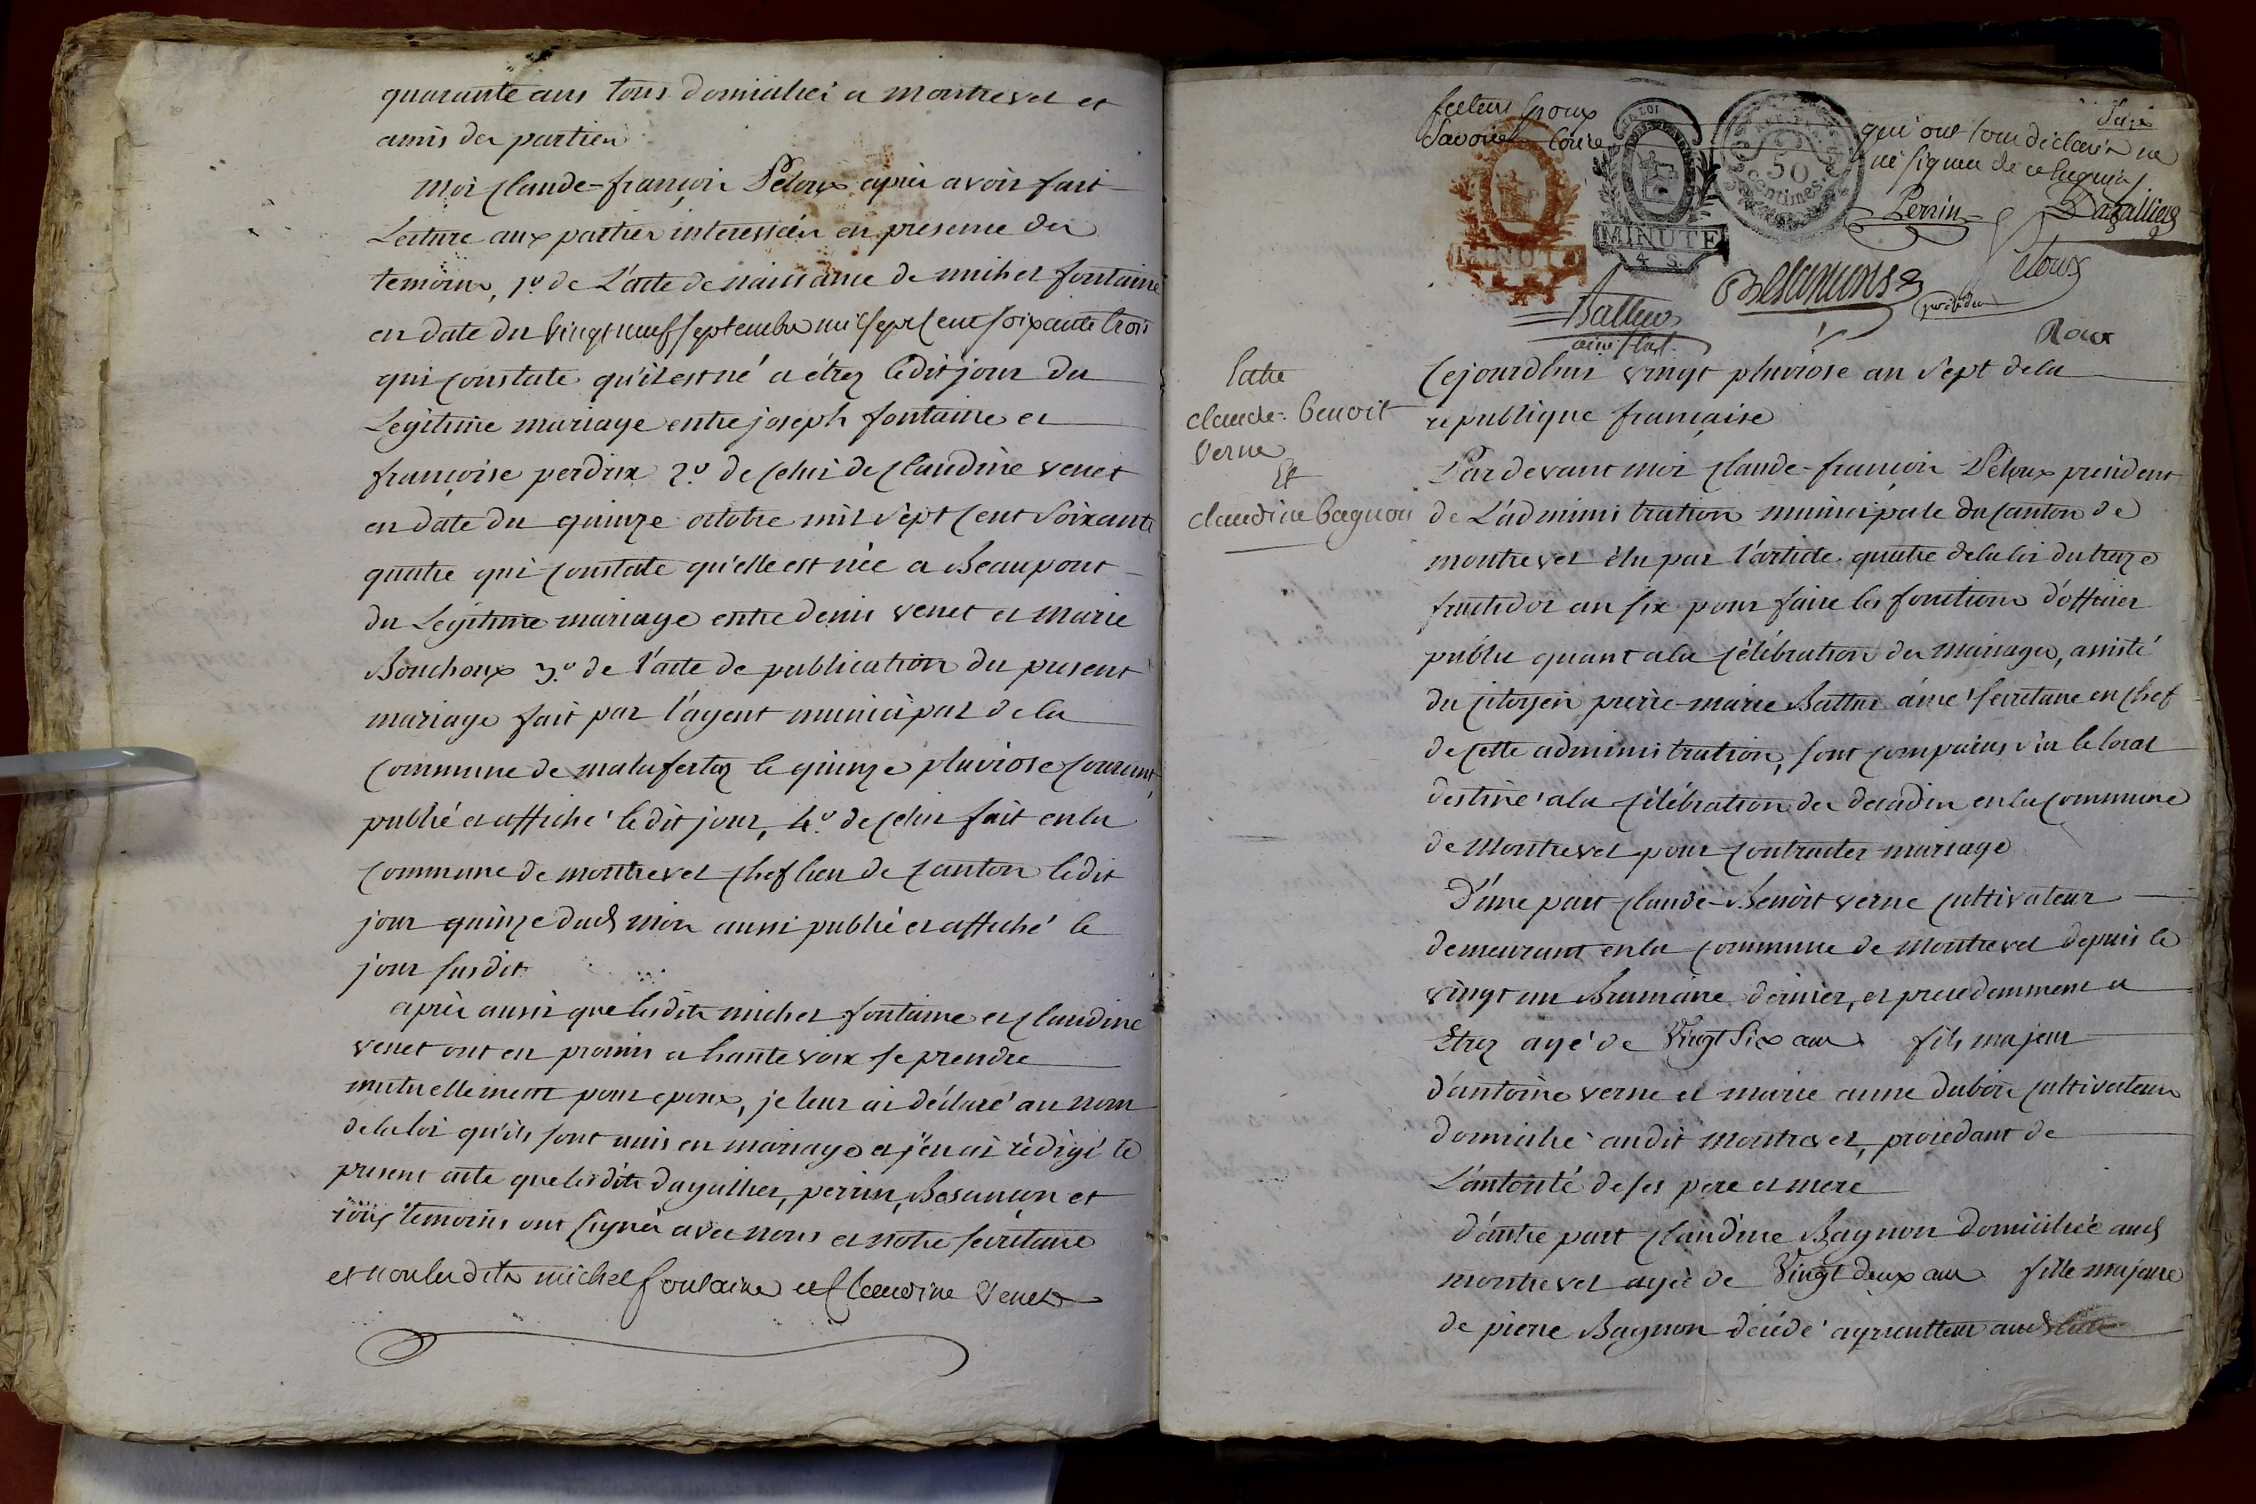 quarante ans tous domiciliés a montrevel et
amis des parties
moi Claude-françois Peloux après avoir fait
Lecture aux parties interessées en presence des
temoins, 1º de L'acte de naissance de michel fontaine
en date du vingt neuf septembre mil sept Cent soixante trois
qui constate qu'il est né a étrez ledit jour du
Legitime mariage entre joseph fontaine et
françoise perdrix 2º de celui de Claudine venet
en date du quinze octobre mil sept Cent soixante
quatre qui constate qu'elle est née a Beaupont
du Legitime mariage entre denis venet et marie
Bouchoux 3º de l'acte de publication du present
mariage fait par l'agent municipal de la
Commune de malafertaz le quinze pluviose courant,
publié et affiché ledit jour, 4º de celui fait en la
Commune de montrevel chef lieu de Canton ledit
jour quinze dud. mois aussi publié et affiché le
jour susdit
après aussi que lesdits michel fontaine et Claudine
venet ont eu promis a haute voix se prendre
mutuellement pour epoux, je leur ai déclaré au nom
de la loi qu'ils sont unis en mariage et j'en ai rédigé le
present acte que lesdits dagallier, perrin, Besançon et
roux temoins ont signés avec nous et notre secrétaire
et non lesdits michel fontaine et Claudine Venet
Seize
futurs Epoux
Savoir
qui ont tous déclarés ne
signer de ce requis
LOI
MINUTE
4 S.
MINUTE
50
Centimes
Perrin
Dagallier
Peloux
président
Besançon
Battur
ainé
Roux
Entre
Claude-Benoit
Verne
Et
Claudine Bagnon
Cejourdhui vingt pluviose an sept de la
republique française
Pardevant moi Claude-françois Peloux president
de L'administration municipale du Canton de
montrevel élu par l'article quatre de la loi du treize
fructidor an six pour faire les fonctions d'officier
public quant a la célébration des mariages, assisté
du citoyen pierre-marie Battur ainé secretaire en chef
de cette administration, sont comparus sur le local
destiné a la célébration des decadis en la commune
de Montrevel pour contracter mariage
D'une part Claude-Benoit verne cultivateur
demeurant en la commune de montrevel depuis le
vingt un Brumaire dernier, et precedemment a
Etrez agé de Vingt Six ans fils majeur
d'antoine verne et marie anne dubois cultivateurs
domiciliés audit montrevel, procédant de
L'autorité de ses pere et mere
d'autre part Claudine Bagnon domiciliée aud.
montrevel agée de Vingt deux ans fille majeure
de pierre Bagnon décédé agriculteur aud.